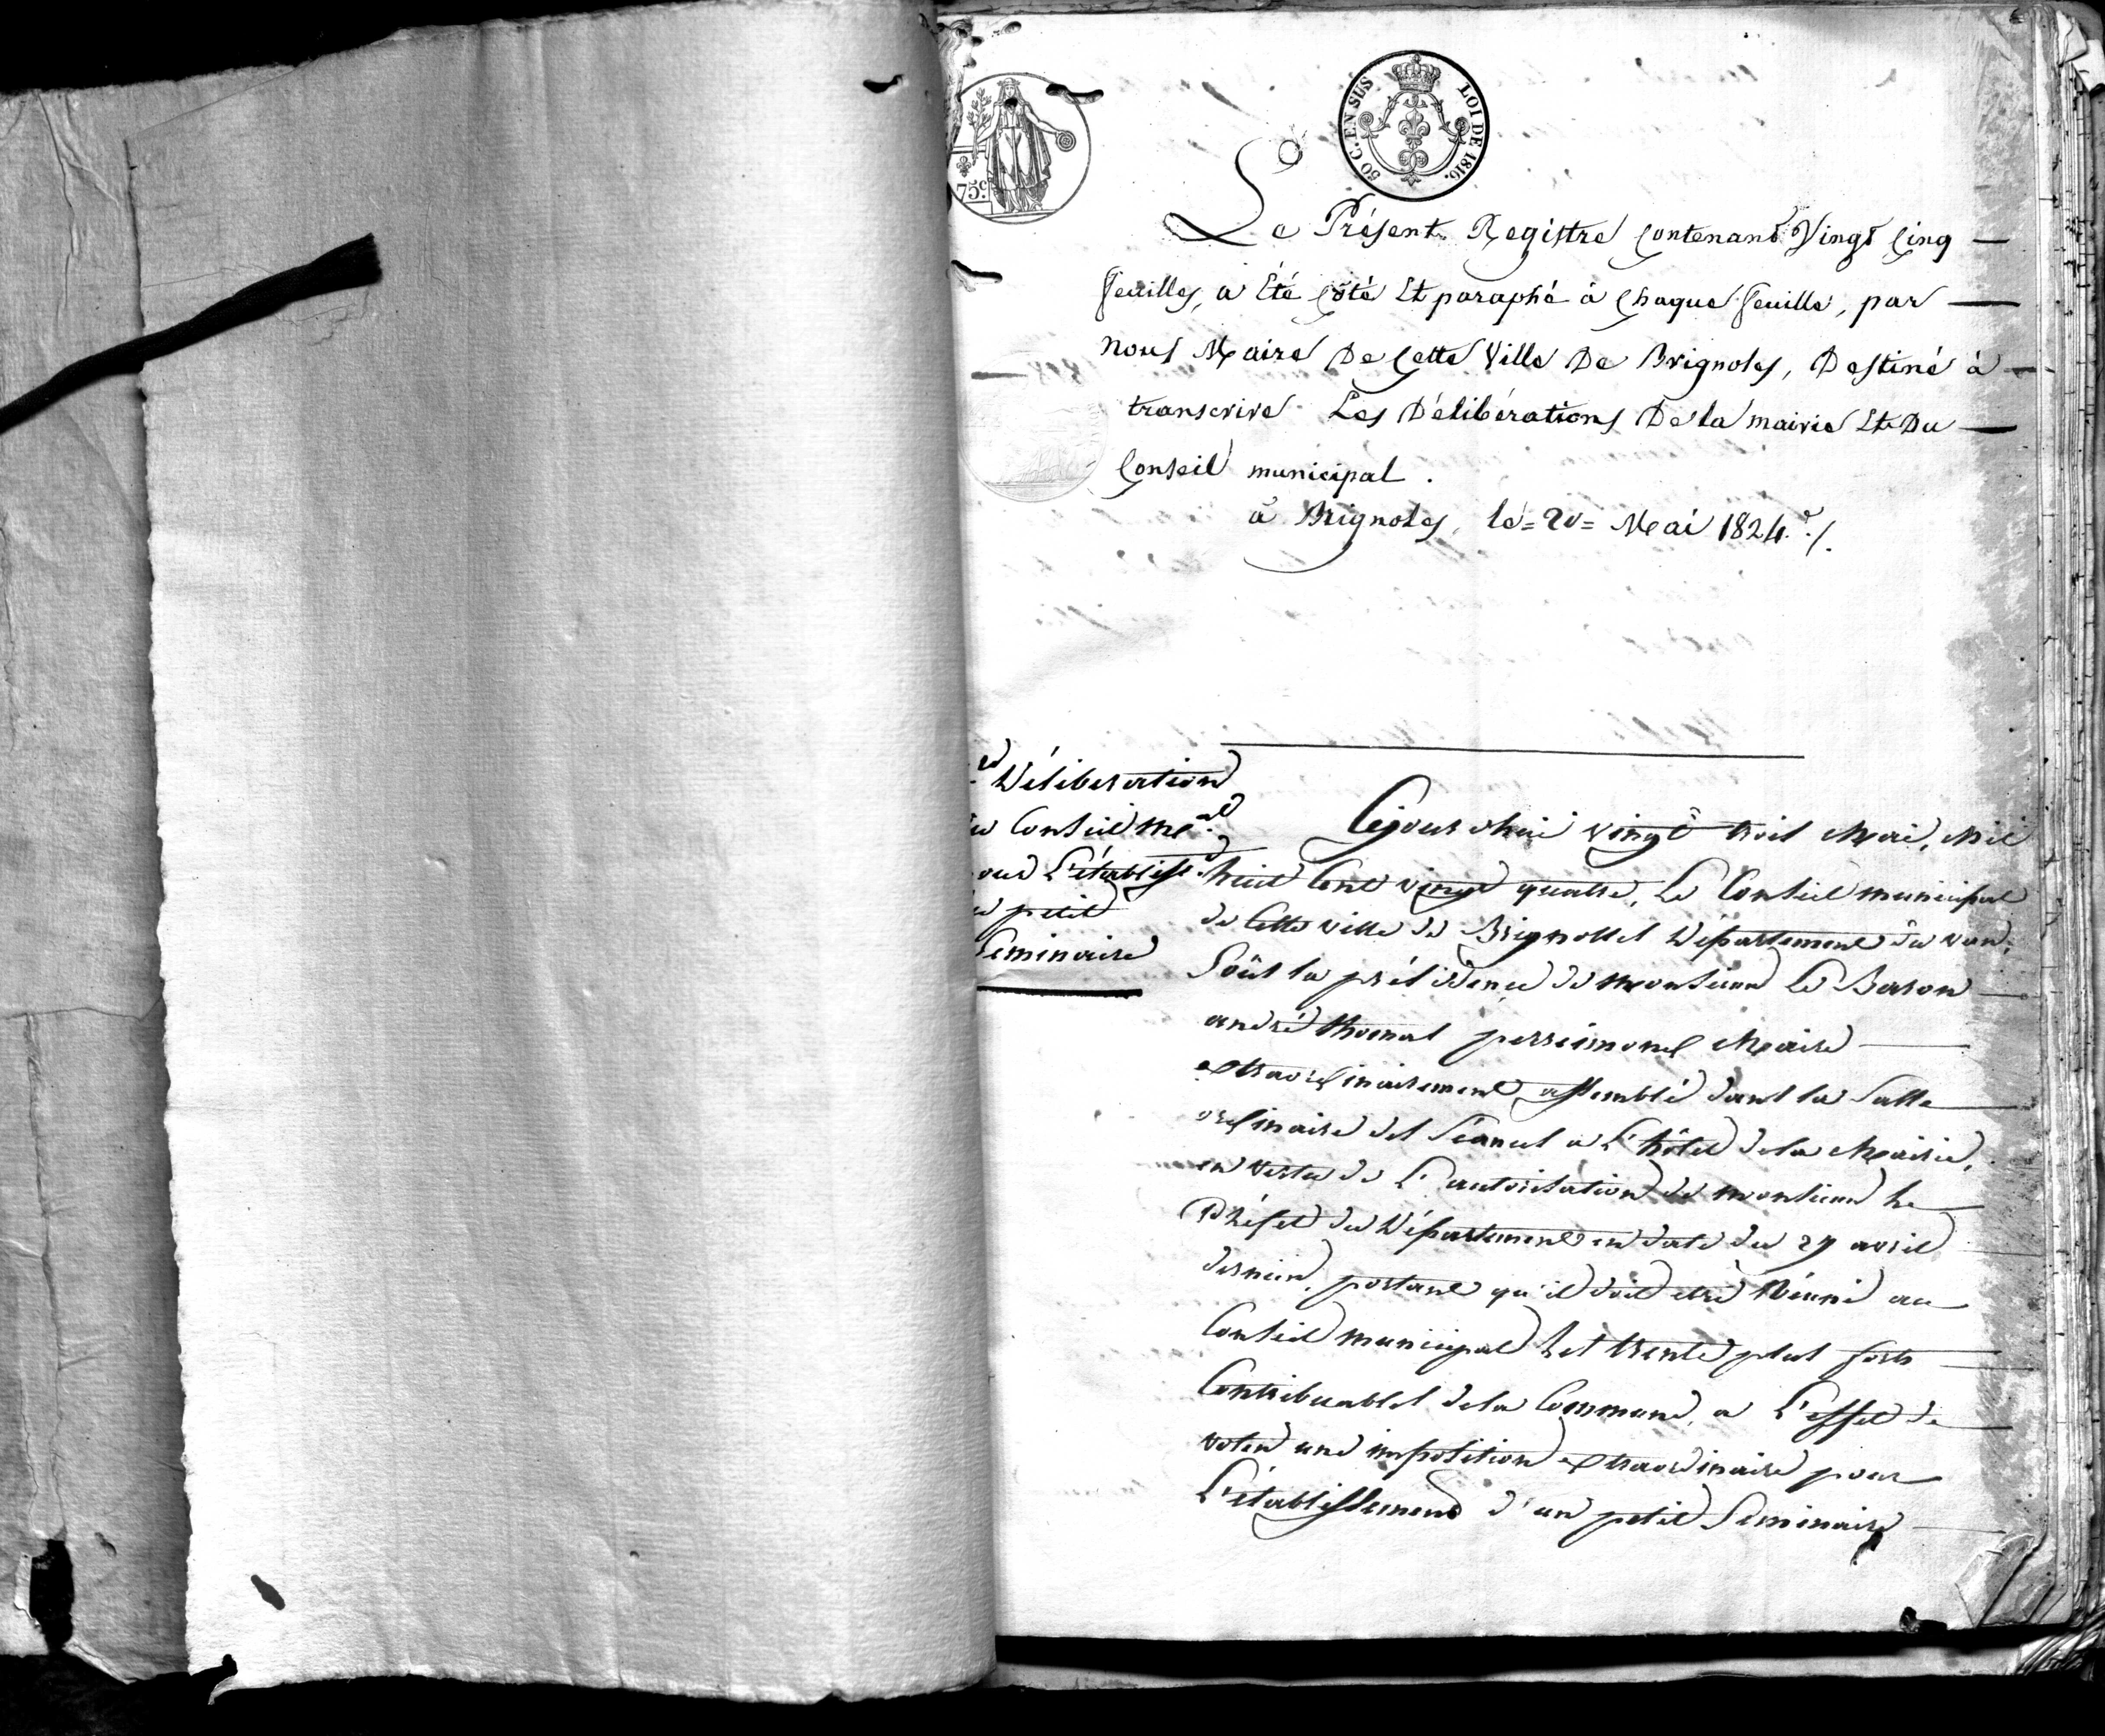 50 C. EN SUS
LOI DE 1816.
75.c
Le Présent Registre Contenant Vingt Cinq
feuilles, a été Côté Et paraphé à Chaque feuille, par
nous Maire De Cette Ville De Brignoles, Destiné à
transcrire Les Délibérations De la mairie Et Du
Conseil municipal.
à Brignoles, le = 20 = Mai 1824. /.
Délibération
Conseil m.al
L'établisst.
petit
Séminaire
Cejourd'hui vingt trois Mai, Mil
huit Cent vingt quatre, Le Conseil municipal
de Cette ville de Brignolles Département du var,
Sous la présidence de Monsieur Le Baron
andré thomas perrimond Maire
extraordinairement assemblé dans la Salle
ordinaire des Séances a L'hôtel de la Mairie,
en vertu de L'autorisation de monsieur Le
Préfet du Département en date du 27 avril
dernier, portant qu'il doit etre Réuni au
Conseil municipal Les trente plus forts
Contribuables de la Commune, a L'effet de
voter une imposition extraordinaire pour
L'établissement d'un petit Séminaire